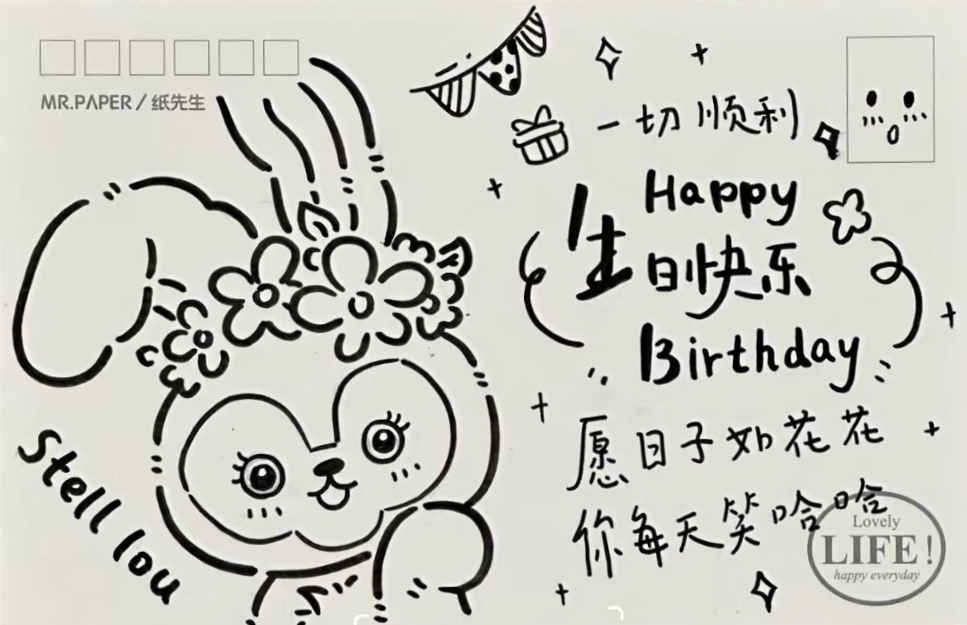 MR.PAPER / 纸先生
一切顺利
Happy
生日快乐
Birthday
愿日子如花花
你每天笑哈哈
Stell lou
Lovely
LIFE!
happy everyday